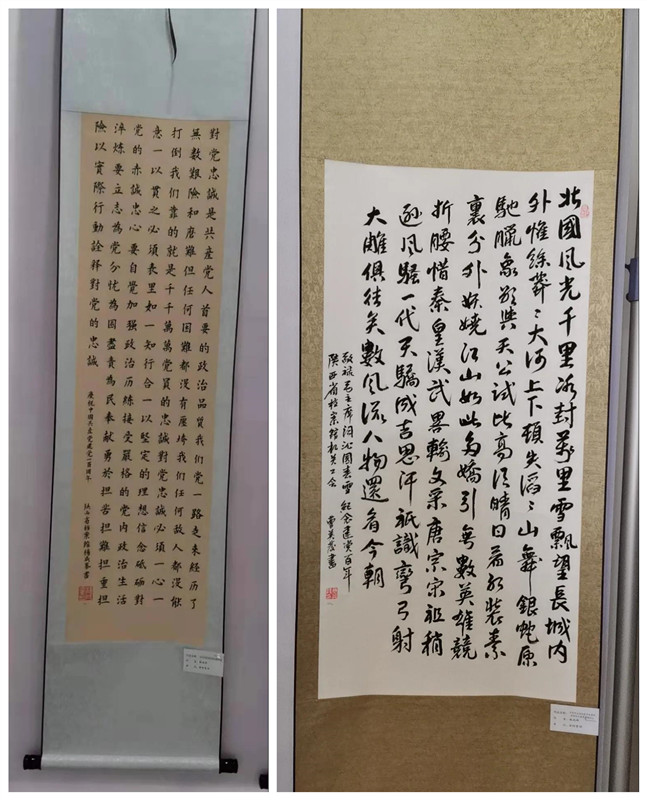 對党忠誠是共産党人首要的政治品質我们党一路走来経历了
無数艱險和磨難但任何困難都没有壓垮我们任何敌人都没能
打倒我们靠的就是千千萬萬党員的忠誠對党忠誠必須一心一
意一以貫之必須表里如一知行合一以堅定的理想信念砥砺對
党的赤誠忠心要自覚加强政治历練接受嚴格的党内政治生活
淬煉要立志為党分忧為国盡責為民奉献勇於担苦担難担重担
險以實際行動詮释對党的忠誠
慶祝中國共産党建党一百周年
陕西省档案館
北國風光千里冰封萬里雪飘望長城内
外惟餘莽々大河上下頓失滔々山舞銀蛇原
馳臘象欲與天公試比高須晴日看红装素
裏分外妖娆江山如此多嬌引無數英雄競
折腰惜秦皇漢武畧輸文采唐宗宋祖稍
遜風騷一代天驕成吉思汗祇識彎弓射
大雕俱往矣數風流人物還看今朝
敬録毛主席词沁園春雪 紀念建党百年
陕西省档案館机关工会